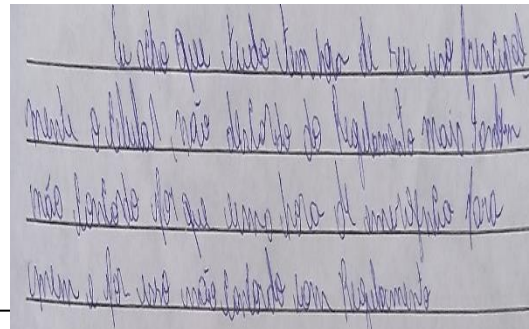 Eu acho que tudo tem hora de seu uso principal
mente o celular, não discordo do Regulamento mais tambem
não concordo por que uma hora de emergência para
e por isso não concordo com Regulamento